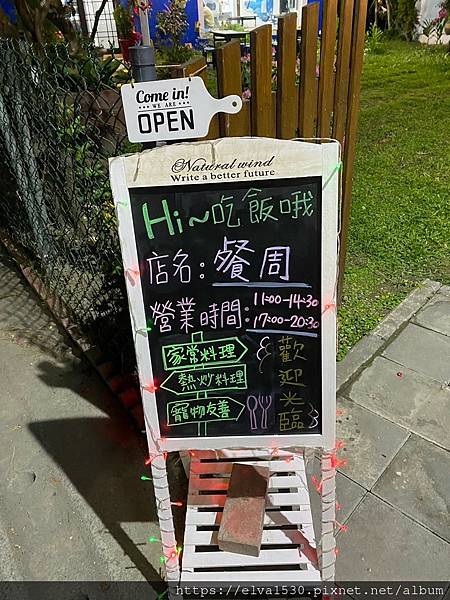 Come in!
WE ARE
OPEN
Natural wind
Write a better future
Hi~吃飯哦
店名：餐周
營業時間：11:00-14:30
17:00-20:30
家常料理
熱炒料理
寵物友善
歡迎光臨
https://elva1530.pixnet.net/album